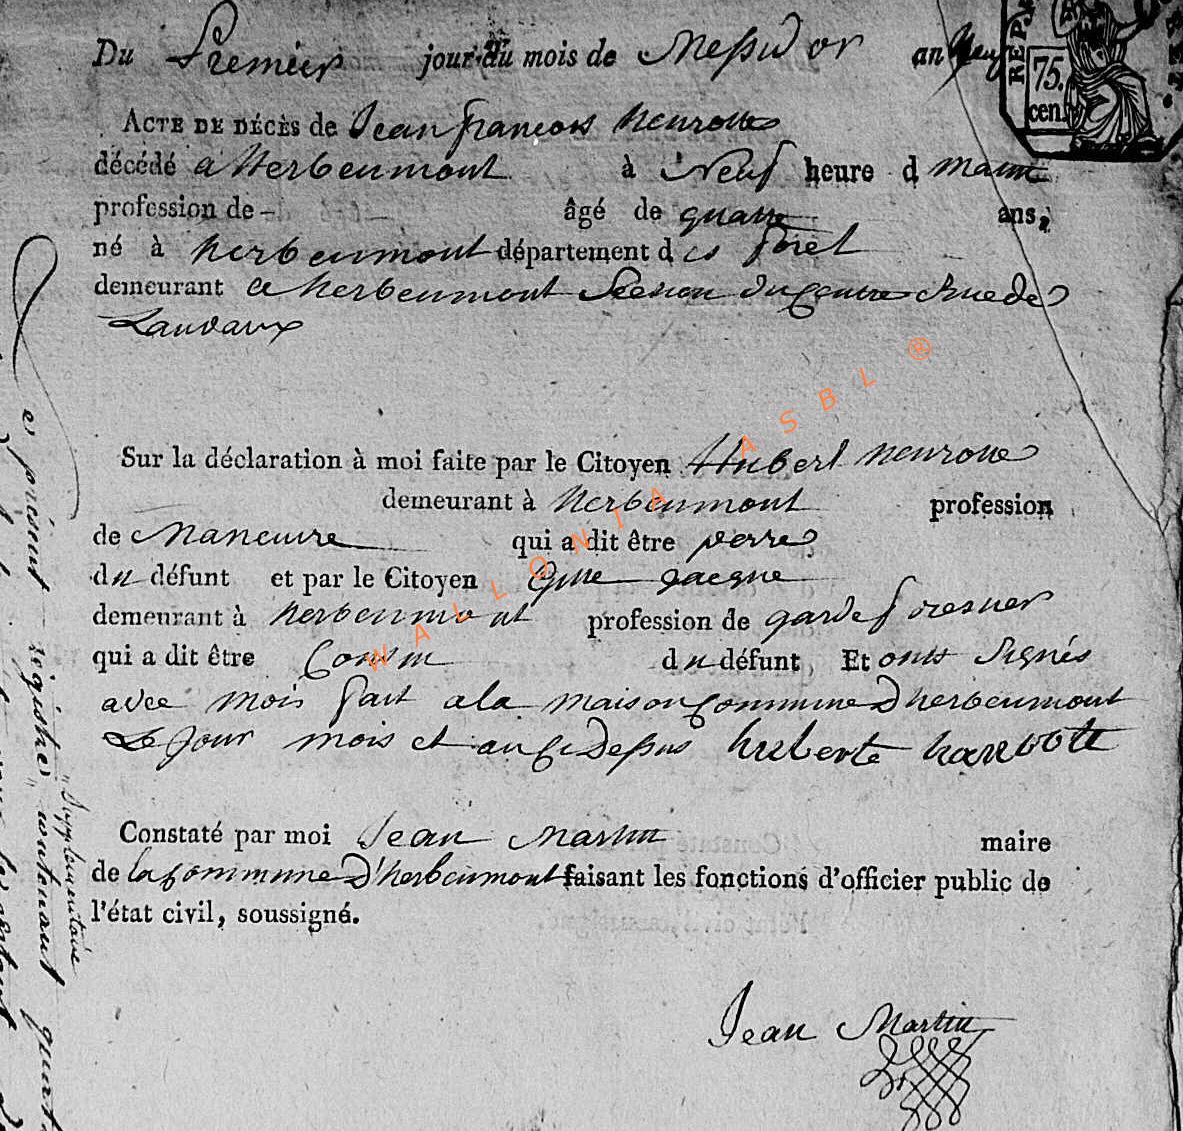 Du Premier jour du mois de Messidor an neuf
REP.
75.
cen.
ACTE DE DÉCÈS de Jean françois
décédé a herbeumont à Neuf heure d matin
profession de - âgé de quatre ans,
né à herbeumont département des foret
demeurant a herbeumont Section du Centre Rue de
Lauvaux
Sur la déclaration à moi faite par le Citoyen Hubert
demeurant à herbeumont profession
de Maneuvre qui a dit être perre
du défunt et par le Citoyen Jacque
demeurant à herbeumont profession de garde forestier
qui a dit être Cousin du défunt Et onts Signés
avec mois fait a la maison Commune d'herbeumont
Le Jour mois et an Ci Dessus huberte
Constaté par moi Jean Martin maire
de la Commune D'herbeumont faisant les fonctions d'officier public de
l'état civil, soussigné.
Jean Martin
WALLONIA ASBL ®
le présent registre
"Supplementaire"
contenant